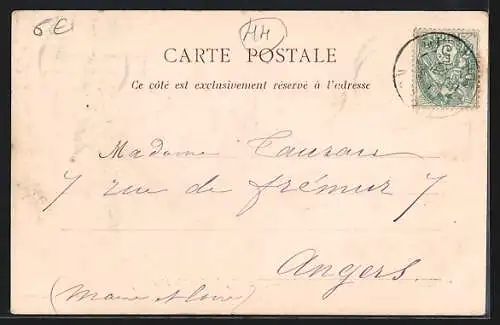 6€
HH
CARTE POSTALE
Ce côté est exclusivement réservé à l'adresse
5
Madame Tauzan
7 rue de frémur 7
Angers
(Maine & Loire)